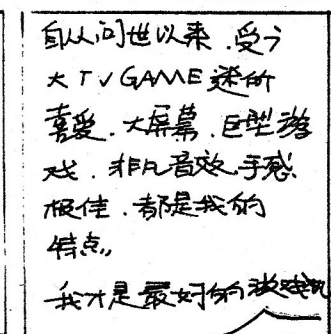 自从问世以来.受广
大TV GAME迷的
喜爱.大屏幕.巨型游
戏.非凡音效.手感
极佳.都是我的
特点,,
我才是最好的游戏机